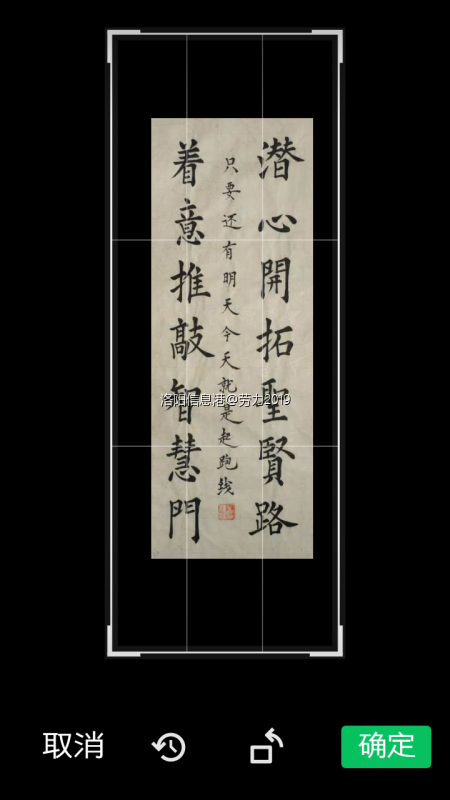 潜心開拓聖賢路
只要还有明天今天就是起跑线
着意推敲智慧門
洛阳信息港@劳力2019
取消
确定